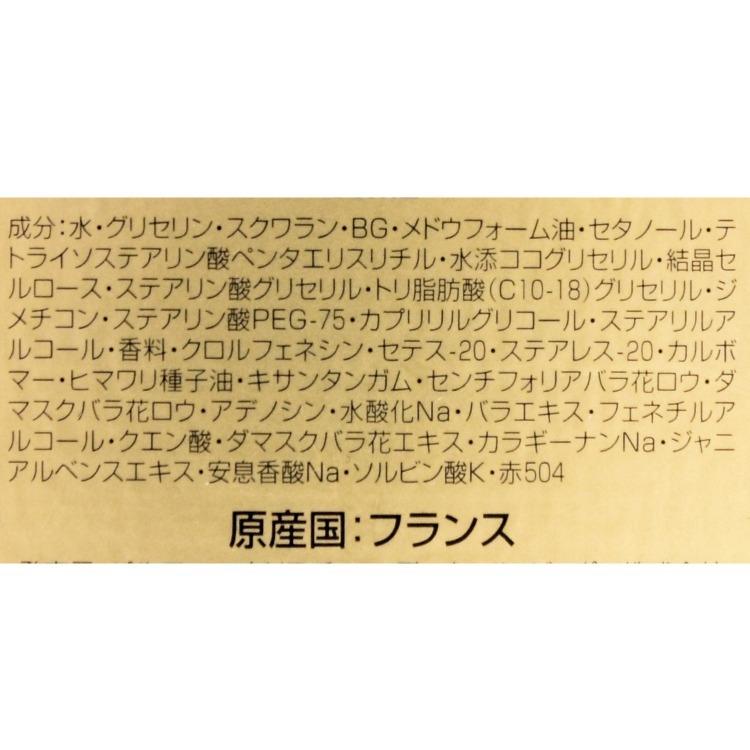 成分:水・グリセリン・スクワラン・BG・メドウフォーム油・セタノール・テ
トライソステアリン酸ペンタエリスリチル・水添ココグリセリル・結晶セ
ルロース・ステアリン酸グリセリル・トリ脂肪酸(C10-18)グリセリル・ジ
メチコン・ステアリン酸PEG-75・カプリリルグリコール・ステアリルア
ルコール・香料・クロルフェネシン・セテス-20・ステアレス-20・カルボ
マー・ヒマワリ種子油・キサンタンガム・センチフォリアバラ花ロウ・ダ
マスクバラ花ロウ・アデノシン・水酸化Na・バラエキス・フェネチルア
ルコール・クエン酸・ダマスクバラ花エキス・カラギーナンNa・ジャニ
アルベンスエキス・安息香酸Na・ソルビン酸K・赤504
原産国:フランス